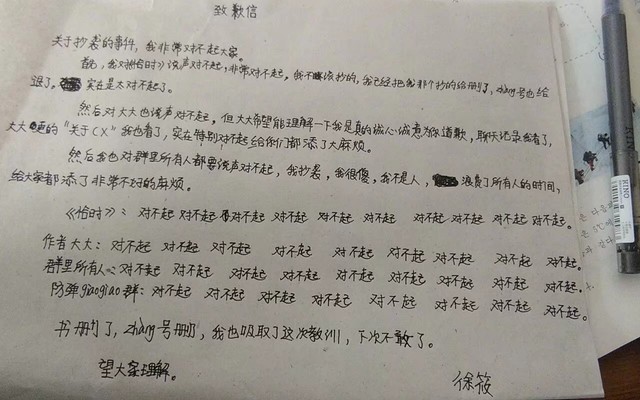 致歉信
关于抄袭的事件，我非常对不起大家。
首先，我对《恰时》说声对不起，非常对不起，我不应该抄的，我已经把我那个抄的给删了，zhang号也给
退了。实在是太对不起了。
然后对大大也说声对不起，但大大希望能理解一下我是真的诚心诚意为你道歉，聊天记录我看了，
大大更的“关于CX”我也看了，实在特别对不起给你们都添了大麻烦。
然后我也对群里所有人都要说声对不起，我抄袭，我很傻，我不是人，浪费了所有人的时间，
给大家都添了非常不好的麻烦。
《恰时》：对不起 对不起 对不起 对不起 对不起 对不起 对不起 对不起 对不起。
作者大大：对不起 对不起 对不起 对不起 对不起 对不起 对不起 对不起 对不起。
群里所有人：对不起 对不起 对不起 对不起 对不起 对不起 对不起 对不起 对不起。
防弹giaogiao群：对不起 对不起 对不起 对不起 对不起 对不起 对不起 对不起。
书删了，zhang号删了，我也吸取了这次教训，下次不敢了。
望大家理解。
徐筱
KINO